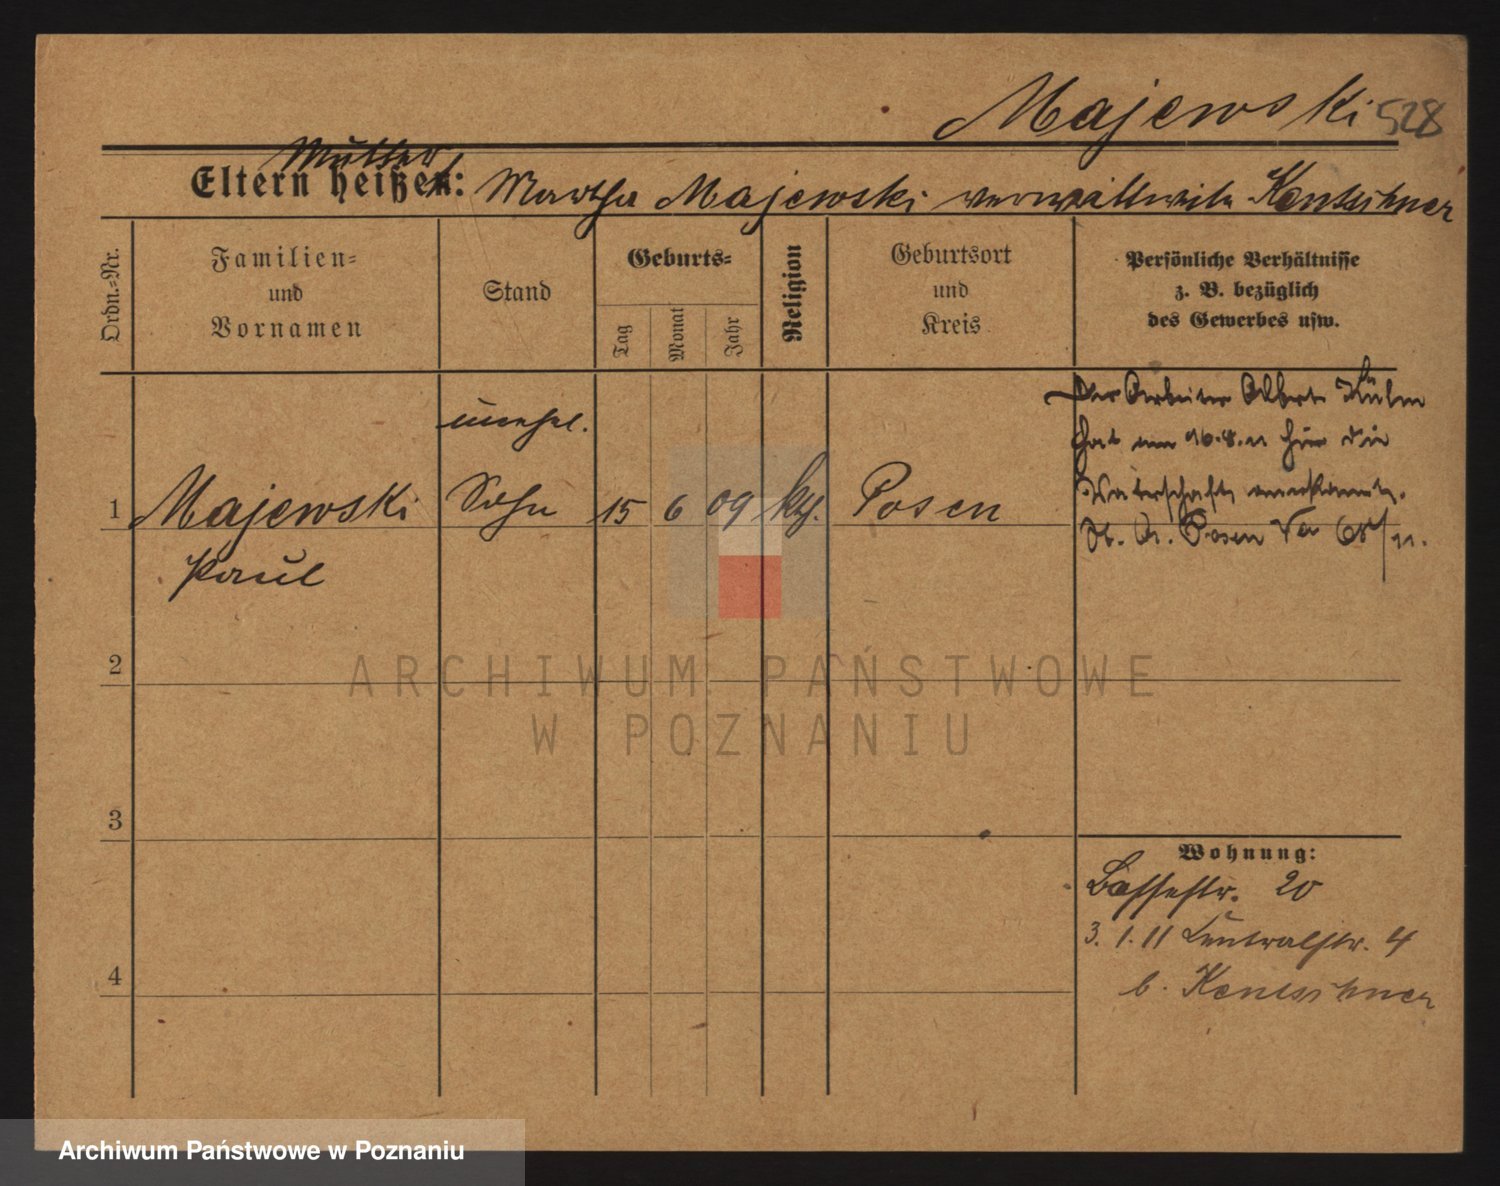 Majewski 528
Mutter
Eltern heißen: Martha Majewski verwittwete
Ordn.-Nr.
Familien-
und
Vornamen
Stand
Geburts-
Tag
Monat
Jahr
Religion
Geburtsort
und
Kreis
Persönliche Verhältnisse
z. B. bezüglich
des Gewerbes usw.
Der Arbeiter Albert Kühn
hat am 16.8.11 hier die
Vaterschaft anerkannt.
St. A. Posen
unehel.
1 Majewski Sohn 15 6 09 kth. Posen
Paul
2
3
4
Wohnung:
20
3.1.11 Centralstr. 4
b.
ARCHIWUM PAŃSTWOWE
W POZNANIU
Archiwum Państwowe w Poznaniu